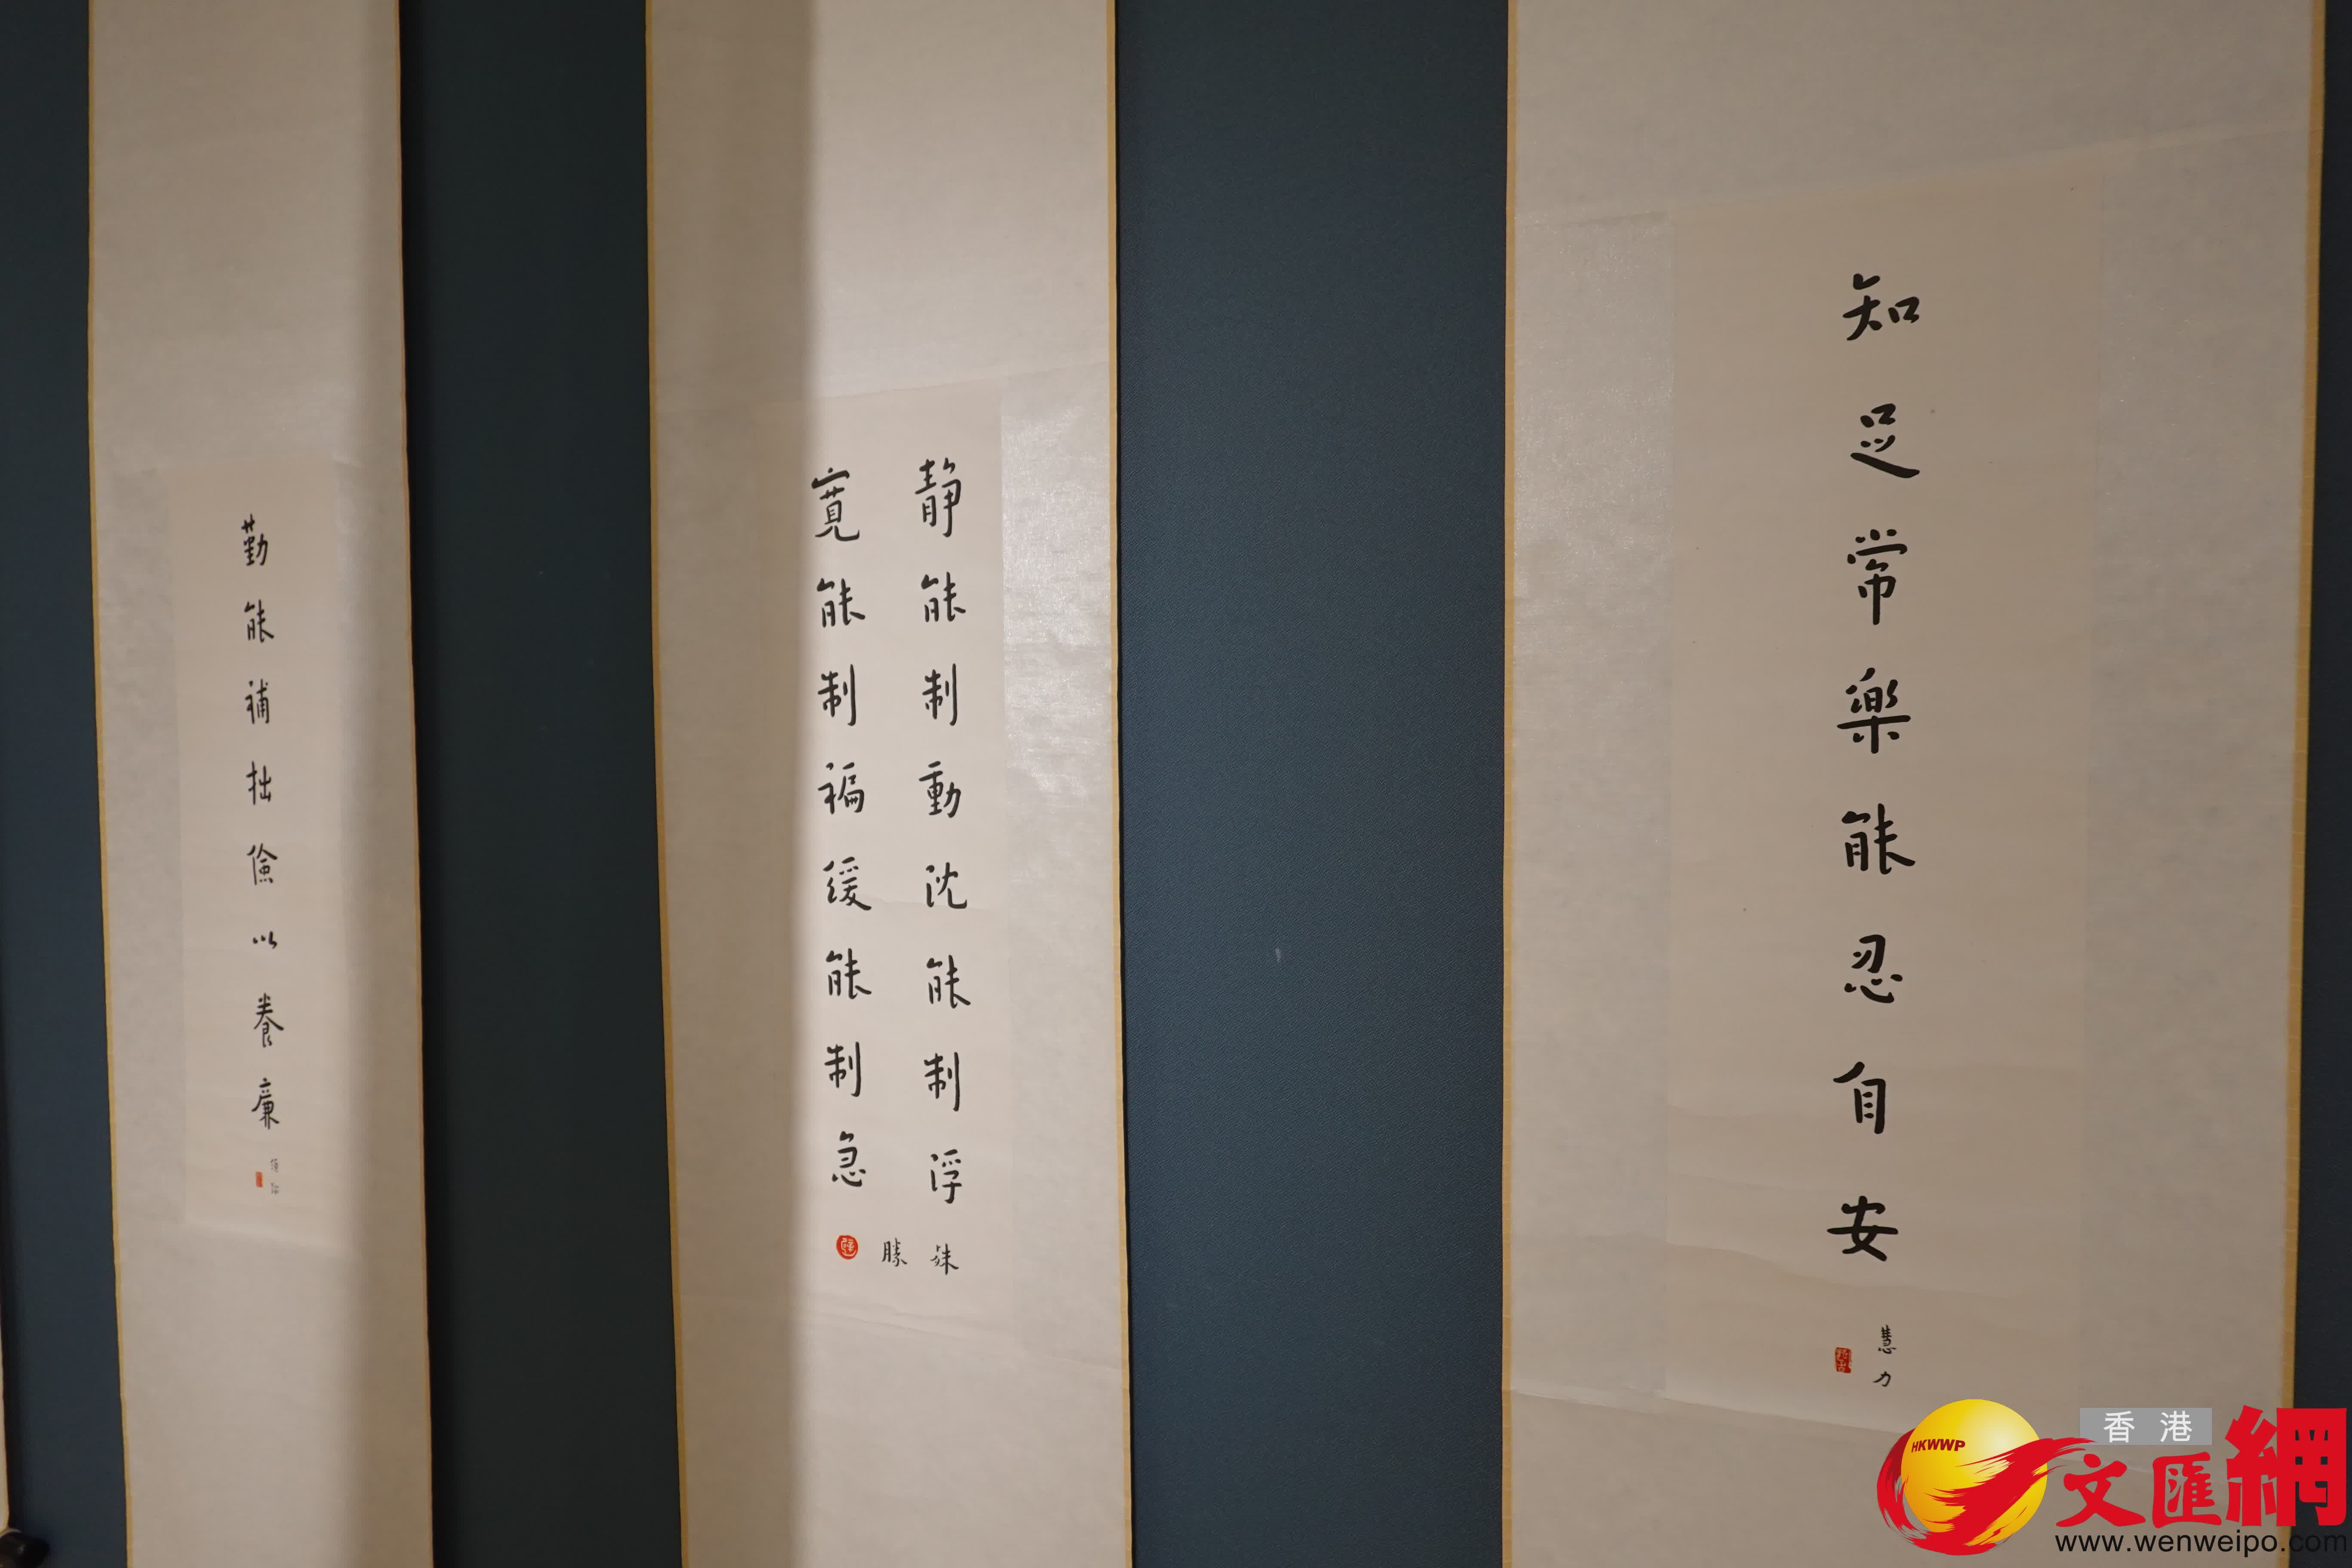 知足常樂能忍自安
慧力
靜能制動沈能制浮
寬能制褊緩能制急
殊
勝
勤能補拙儉以養廉
HKWWP
香港
文匯網
www.wenweipo.com